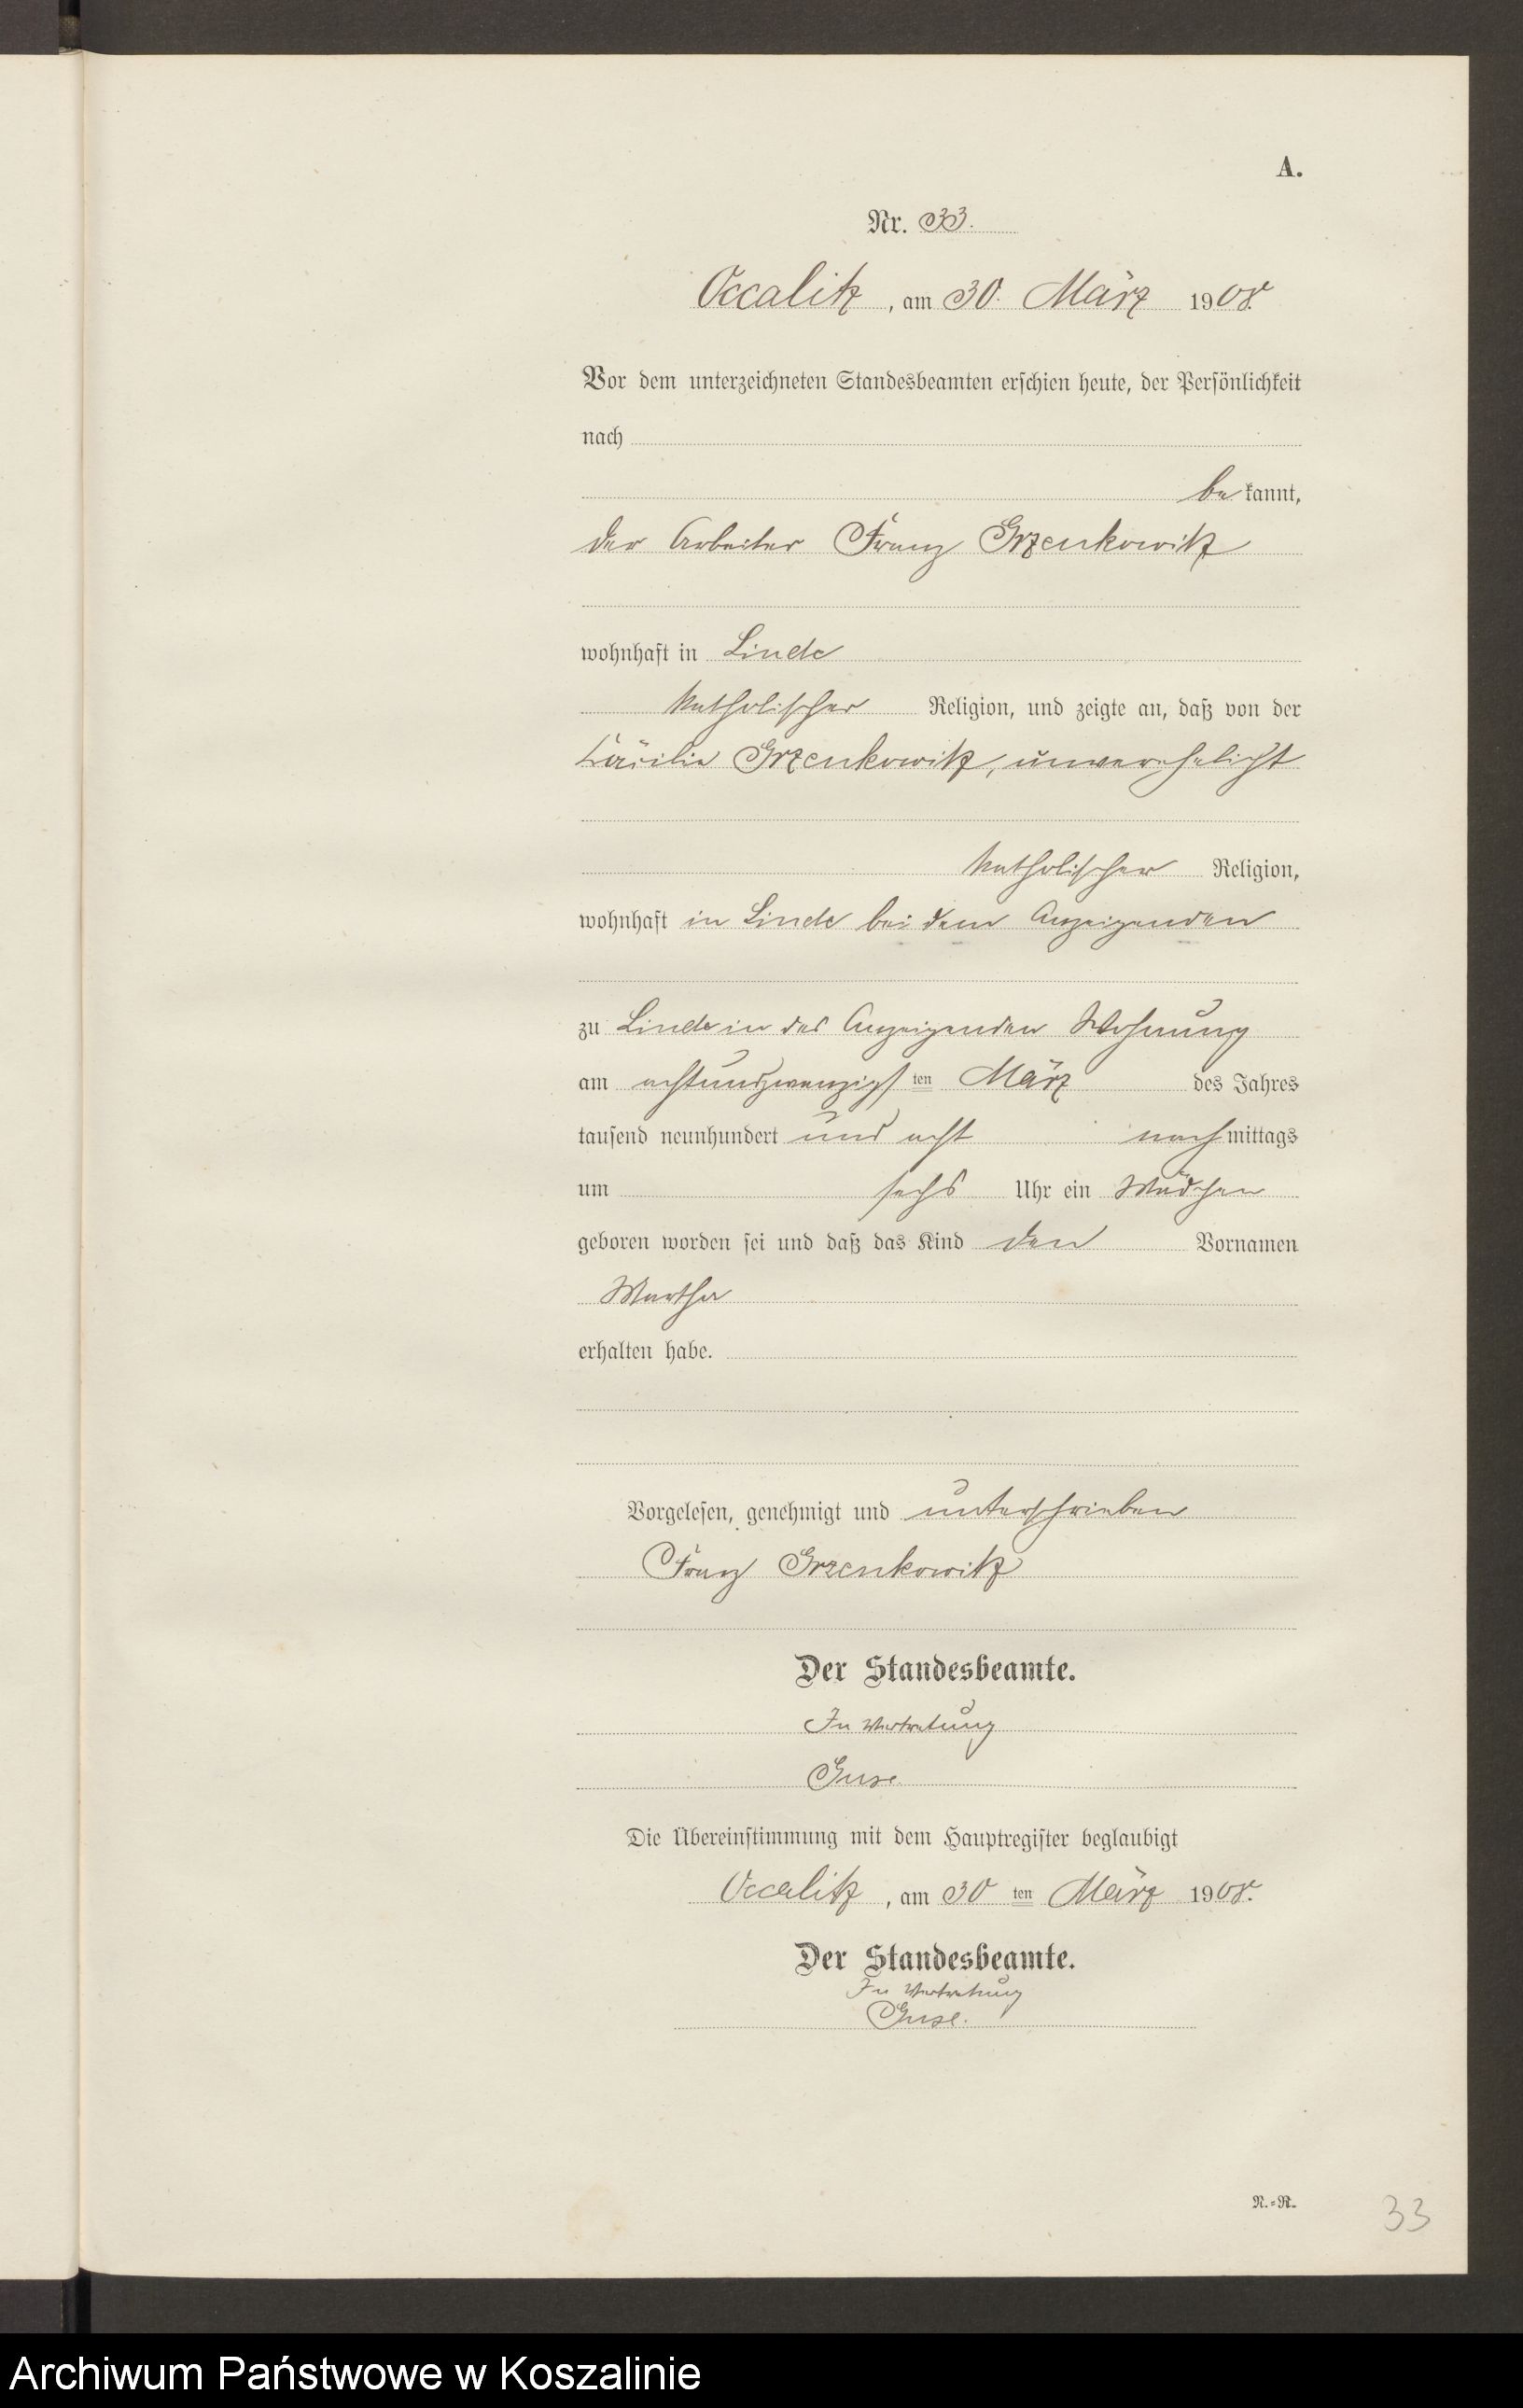 A.
Nr. 33.
Occalitz, am 30. März 1908.
Vor dem unterzeichneten Standesbeamten erschien heute, der Persönlichkeit
nach
be kannt,
der Arbeiter Franz Grzenkowitz
wohnhaft in Linde
katholischer Religion, und zeigte an, daß von der
Cäcilie Grzenkowitz, unverehelicht
katholischer Religion,
wohnhaft in Linde bei dem Anzeigenden
zu Linde in des Anzeigenden Wohnung
am achtundzwanzigsten März des Jahres
tausend neunhundert und acht nachmittags
um sechs Uhr ein Mädchen
geboren worden sei und daß das Kind den Vornamen
Martha
erhalten habe.
Vorgelesen, genehmigt und unterschrieben
Franz Grzenkowitz
Der Standesbeamte.
In Vertretung
Guse.
Die Übereinstimmung mit dem Hauptregister beglaubigt
Occalitz, am 30 ten März 1908.
Der Standesbeamte.
In Vertretung
Guse.
N.=R.
33
Archiwum Państwowe w Koszalinie